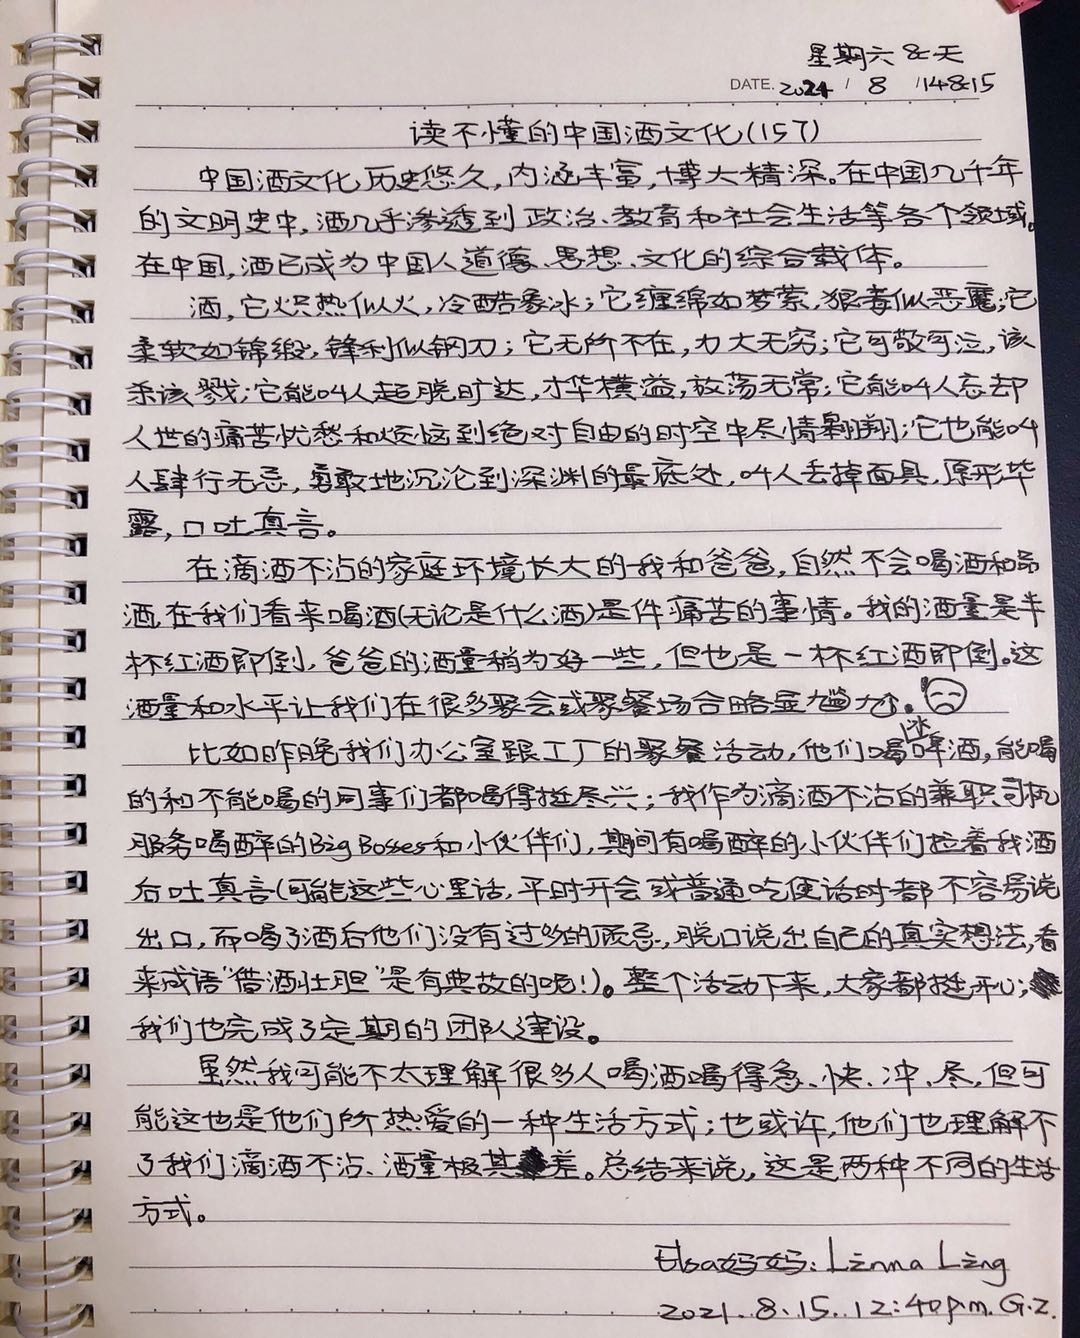 星期六&天
DATE. 2021 / 8 / 14&15
读不懂的中国酒文化(157)
中国酒文化历史悠久,内涵丰富,博大精深。在中国几千年
的文明史中,酒几乎渗透到政治、教育和社会生活等各个领域。
在中国,酒已成为中国人道德、思想、文化的综合载体。
酒,它炽热似火,冷酷象冰;它缠绵如梦萦,狠毒似恶魔;它
柔软如锦缎,锋利似钢刀;它无所不在,力大无穷;它可敬可泣,该
杀该戮;它能叫人超脱旷达,才华横溢,放荡无常;它能叫人忘却
人世的痛苦忧愁和烦恼到绝对自由的时空中尽情翱翔;它也能叫
人肆行无忌,勇敢地沉沦到深渊的最底处,叫人丢掉面具,原形毕
露,口吐真言。
在滴酒不沾的家庭环境长大的我和爸爸,自然不会喝酒和品
酒,在我们看来喝酒(无论是什么酒)是件痛苦的事情。我的酒量是半
杯红酒即倒,爸爸的酒量稍为好一些,但也是一杯红酒即倒。这
酒量和水平让我们在很多聚会或聚餐场合略显尴尬。
比如昨晚我们办公室跟工厂的聚餐活动,他们喝冰啤酒,能喝
的和不能喝的同事们都喝得挺尽兴;我作为滴酒不沾的兼职司机
服务喝醉的Big Bosses和小伙伴们,期间有喝醉的小伙伴们拉着我酒
后吐真言(可能这些心里话,平时开会或普通吃便话时都不容易说
出口,而喝了酒后他们没有过多的顾忌,脱口说出自己的真实想法,看
来成语"借酒壮胆"是有典故的呢!)。整个活动下来,大家都挺开心;
我们也完成了定期的团队建设。
虽然我可能不太理解很多人喝酒喝得急、快、冲、尽,但可
能这也是他们所热爱的一种生活方式;也或许,他们也理解不
了我们滴酒不沾、酒量极其差。总结来说,这是两种不同的生活
方式。
Elsa妈妈: Linna Ling
2021.8.15. 12:40p.m. G.Z.